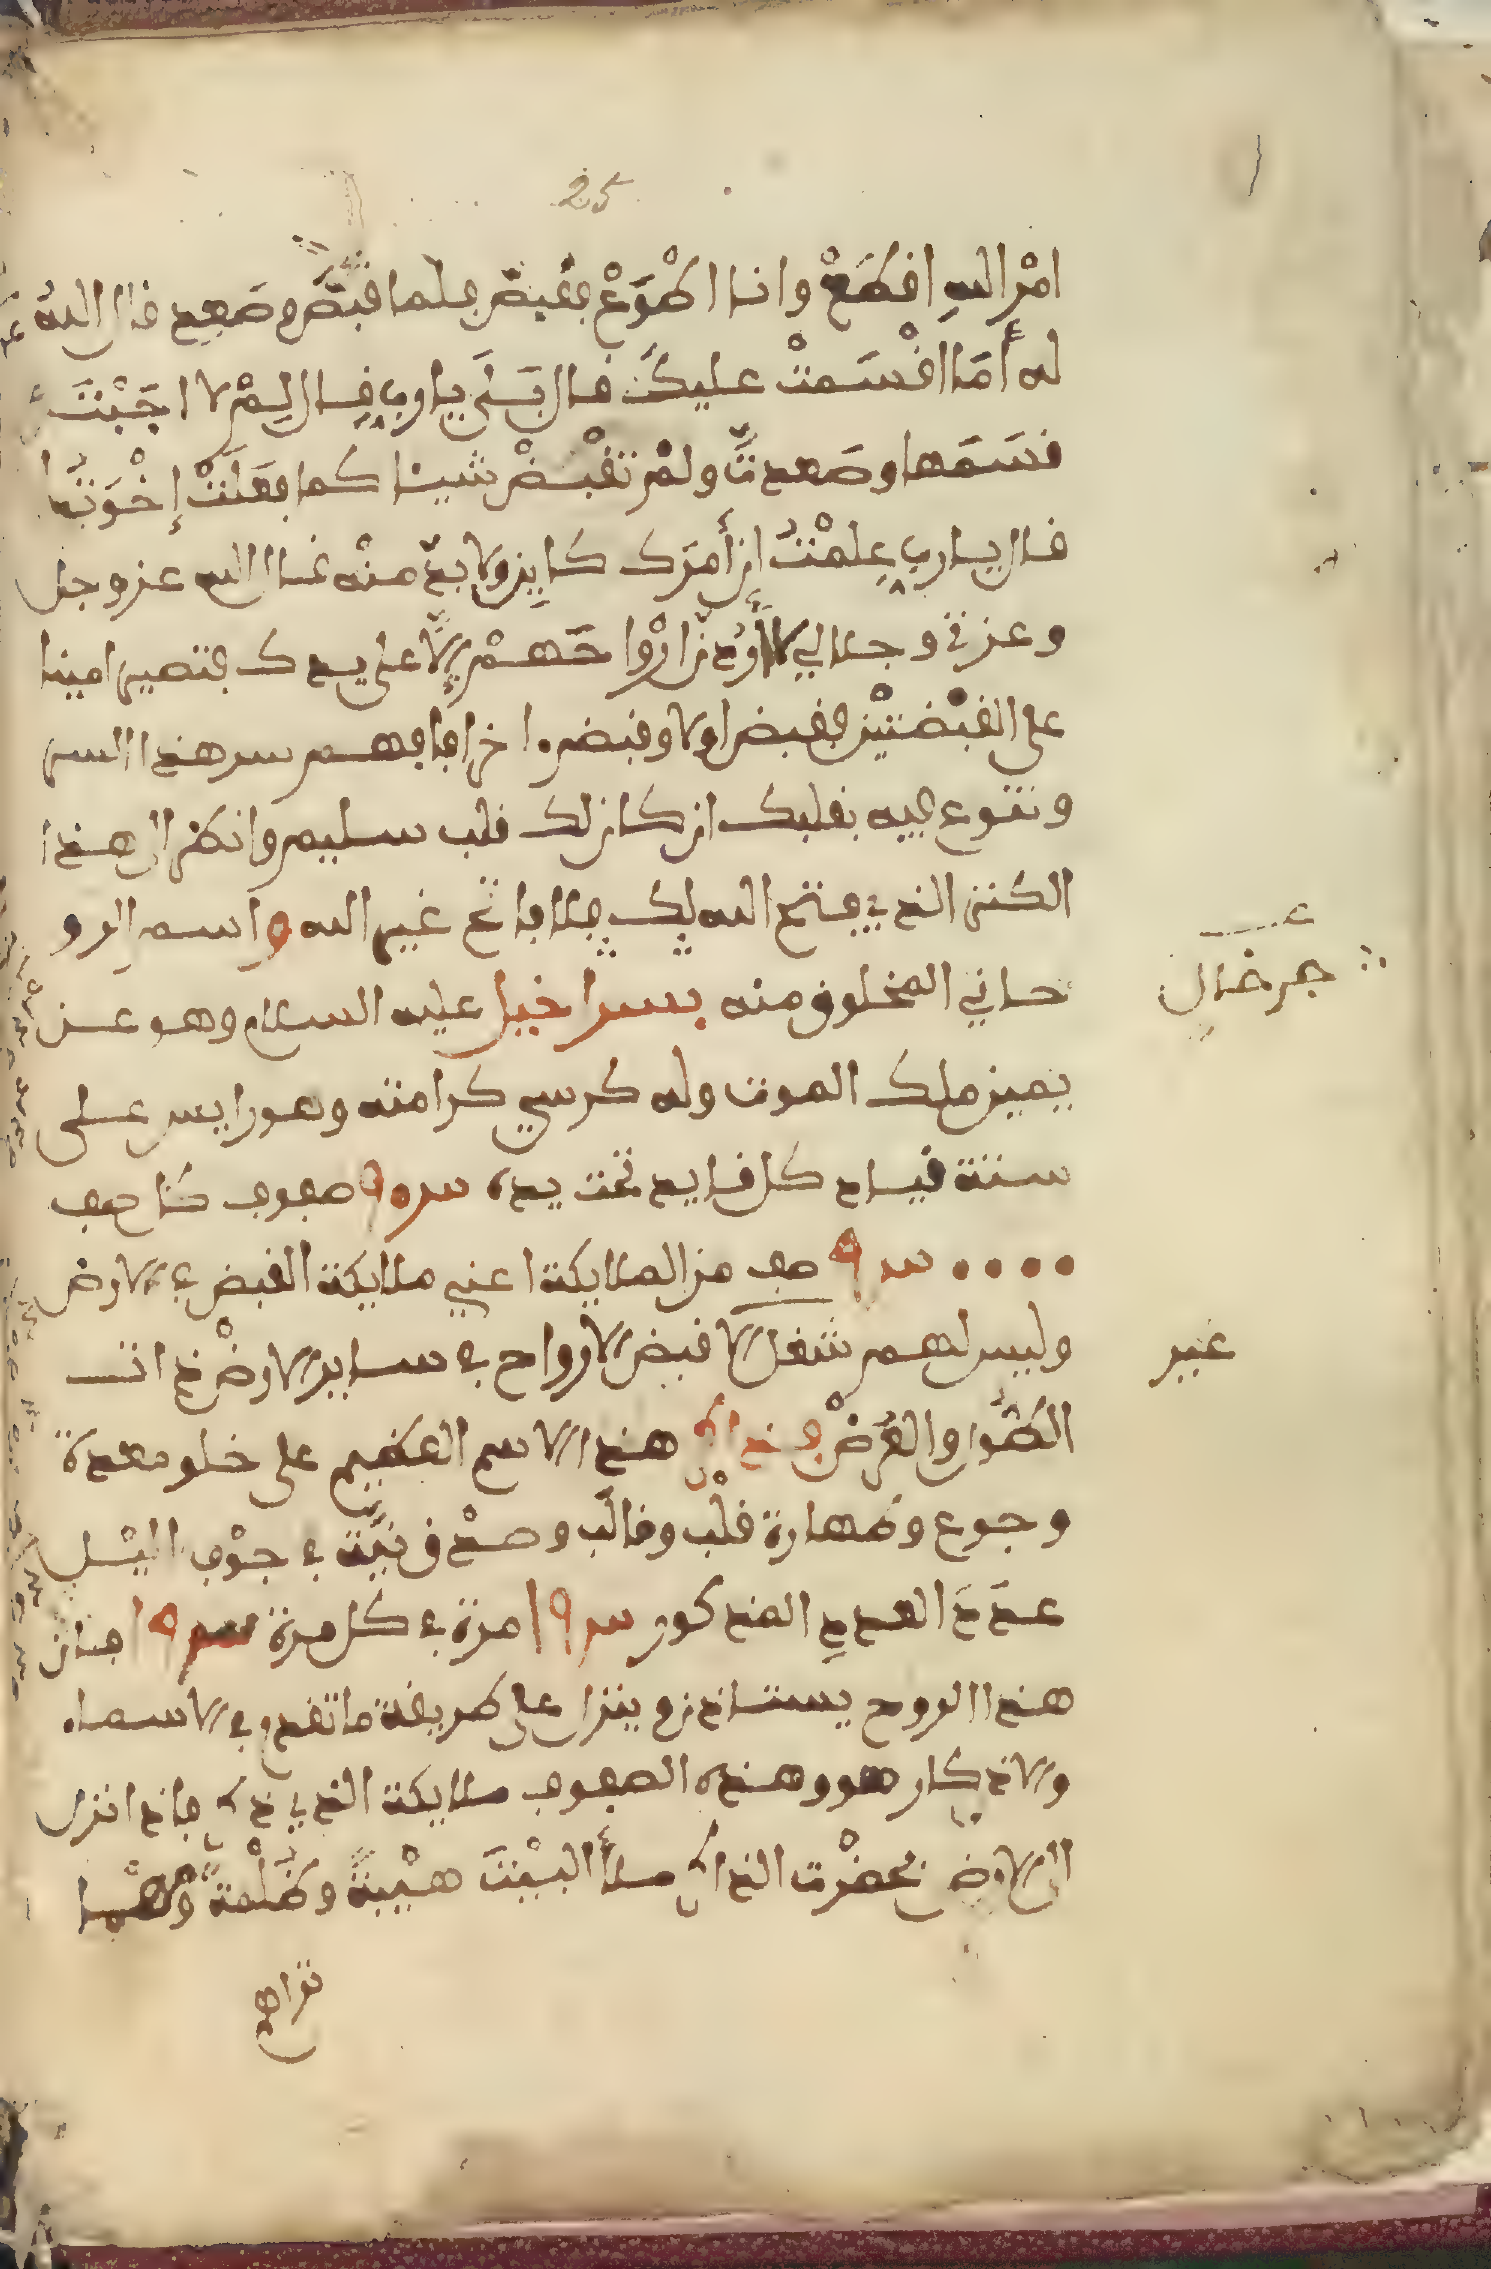 25
امْرَ اللهِ افطَعْ وانا اطْوَعْ فقبض فلما قبض وصَعِد قال اللهُ
له أمَا اقْسَمتْ عليكَ قال بَلَى يا رب قال لِمْ لا اجَبْتَ
قسَمَها وصَعدتَّ ولم تقْبضْ شيئا كما فعَلَتْ إخْوَتُها
قال يا رب عِلمْتُ إن أمرَك كاين ولا بدّ منه فقال الله عز وجل
وعزتي وجلالي لا ارْواحَهمْ إلّا على يدك فتصير امينا
على القبْضتيْن فقبض اولا وقبض اخرا فافهم سر هذا السر
وتنوع فيه بقلبك ان كان لك قلب سليم وانظر الى هذا
الكنز الذي يفتح الله لك فلا فاتح غير الله واسمه الرو
حاني المخلوق منه بسراخيل عليه السلام وهو عن
يمين ملك الموت وله كرسي كرامته وهو رايس على
ستة قياد كل قايد تحت يده صفوف كل صف
صف من الملايكة اعني ملايكة القبض في الارض
وليس لهم شغل الا قبض الارواح في ساير الارض ذات
الطُّول والعَرْض فذاكر هذا الاسم العظيم على خلو معدة
وجوع وطهارة قلْب وقالَب وصدْق نيَّة في جوْف الليْل
عدَدَ العددِ المذكور مرة في كل مرة فان
هذا الروح يستاذن وينزل على طريقة ما تقدم في الاسماء
والاذكار هو وهذه الصفوف ملايكة الذي ذكر فاذا نزل
الى الارض بحضرْت الذاكر ملأ البيْتَ هيْبةً وظُلْمةً
جرخيال
غير
تراه